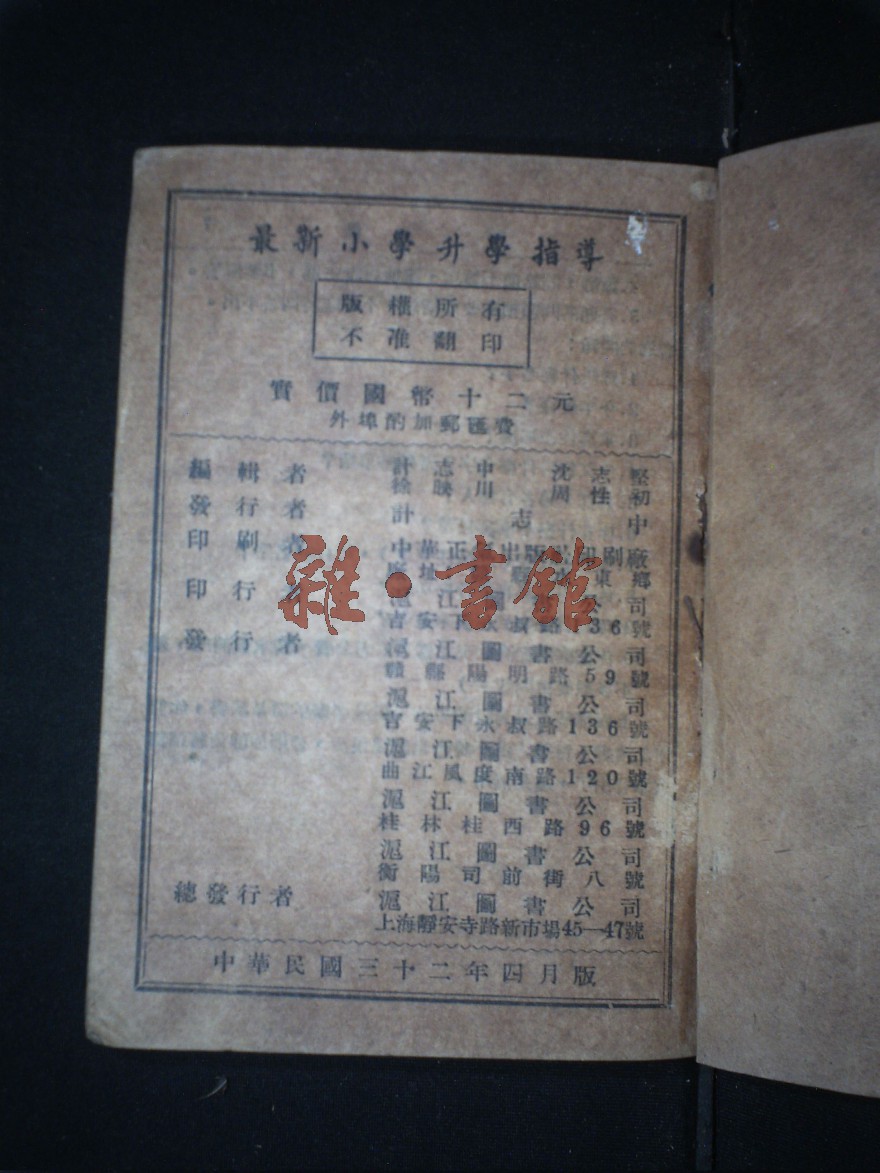 最新小學升學指導
版權所有
不准翻印
實價國幣十二元
外埠酌加郵匯費
編輯者 計志中 沈志堅
徐映川 周性初
發行者 計志中
印刷者 中華正 出版 刷廠
鄉
印行者 滬江圖 公司
吉安下永叔路136號
發行者 滬江圖書公司
贛縣陽明路59號
滬江圖書公司
吉安下永叔路136號
滬江圖書公司
曲江風度南路120號
滬江圖書公司
桂林桂西路96號
滬江圖書公司
衡陽司前街八號
總發行者 滬江圖書公司
上海靜安寺路新市場45—47號
中華民國三十二年四月版
雜·書館